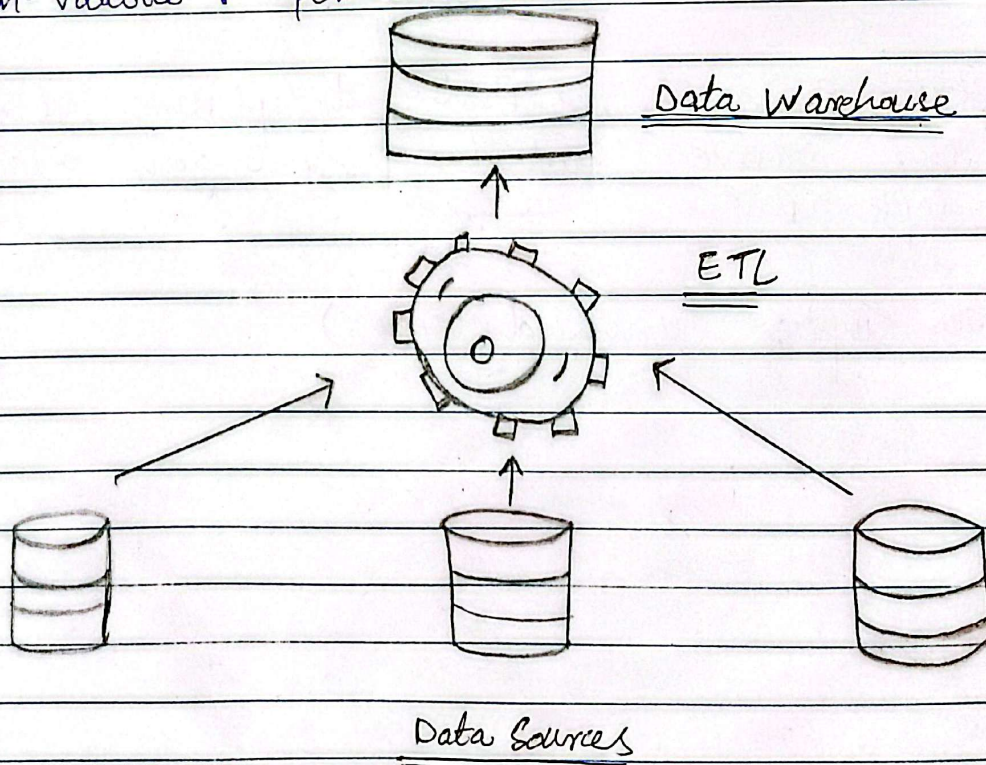 Data Warehouse
ETL
Data Sources